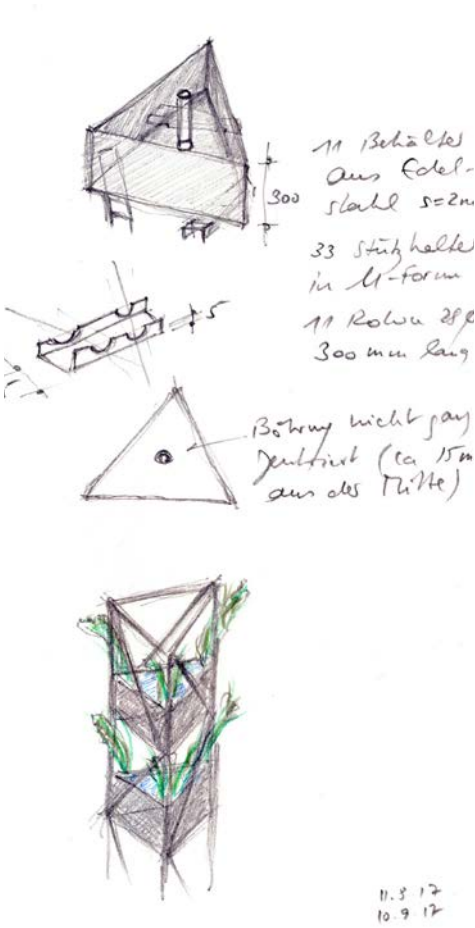 11 Behälter
aus Edel-
stahl s=2m
300
33 Stützhalter
in U-Form
11 Rohre 28
300 mm lang
5
Bohrung nicht ganz
zentriert (ca 15m
aus der Mitte)
11.9.17
10.9.17